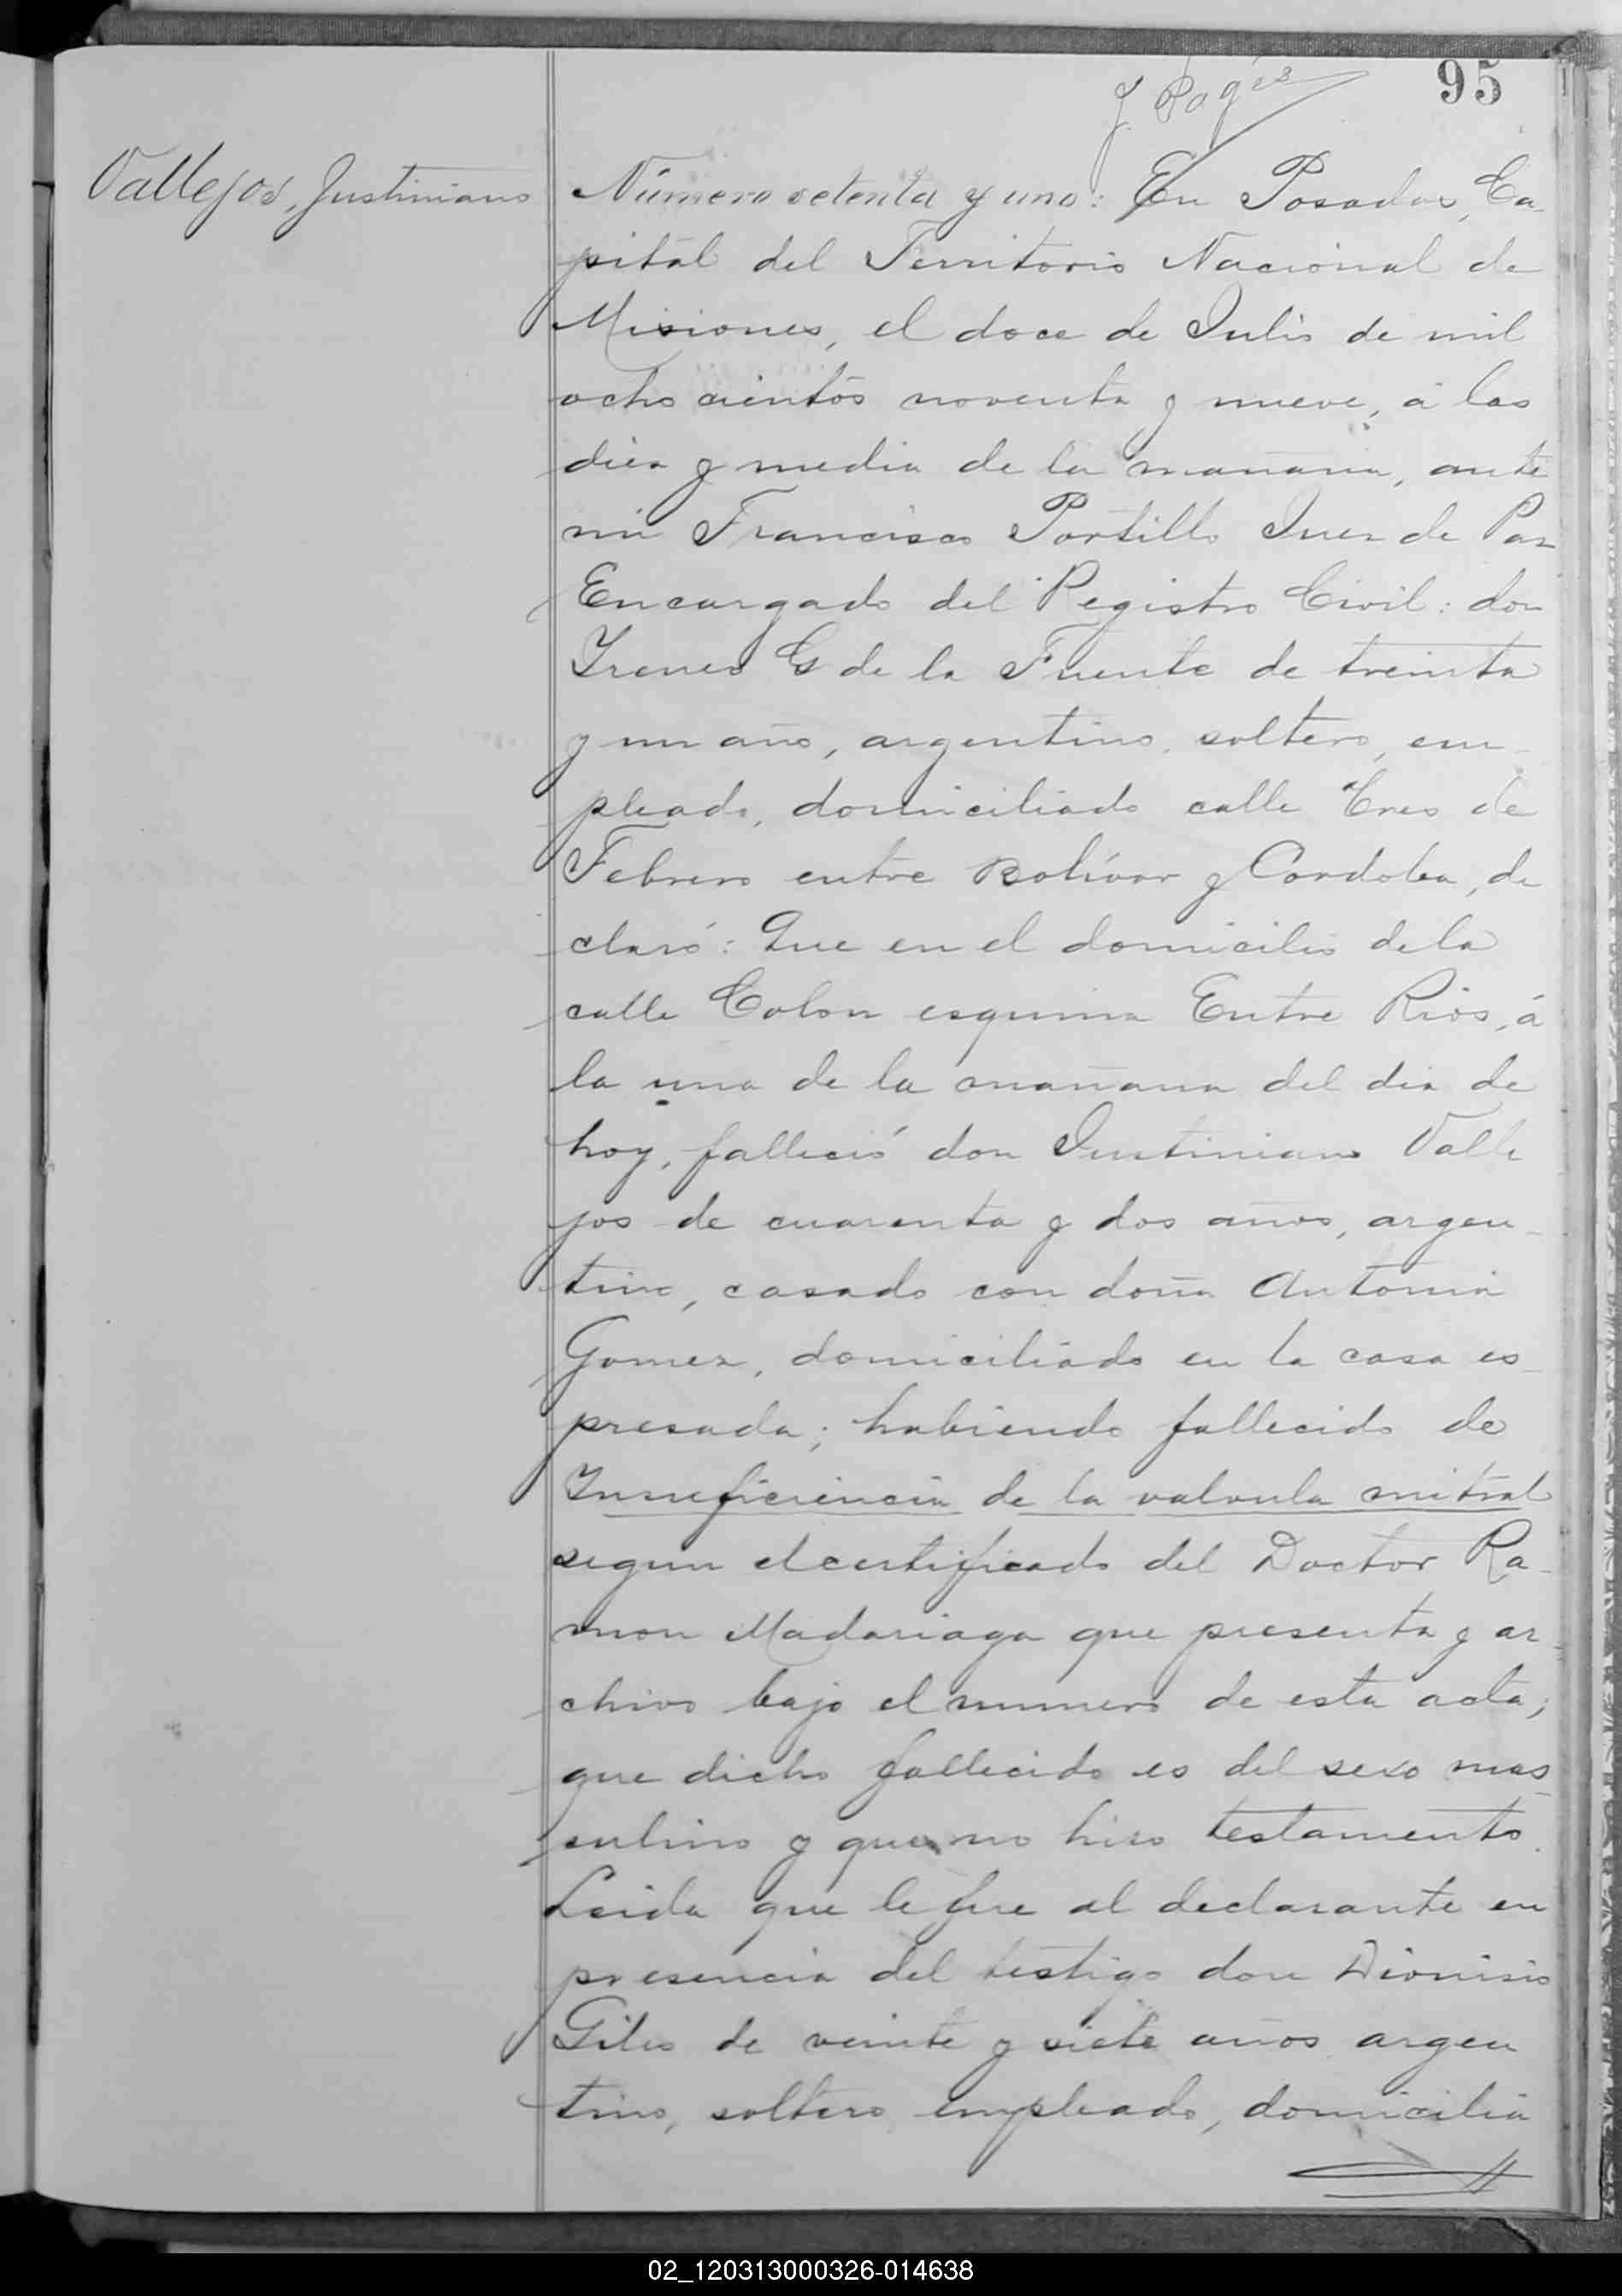 95
J. Pagés
Vallejos, Justiniano
Número setenta y uno: En Posadas, Ca-
pital del Territorio Nacional de
Misiones, el doce de Julio de mil
ocho cientos noventa y nueve, á las
diez y media de la mañana, ante
mi Francisco Portillo Juez de Paz
Encargado del Registro Civil: don
Ireneo G de la Fuente de treinta
y un año, argentino, soltero, em-
pleado, domiciliado calle Tres de
Febrero entre Bolívar y Cordoba, de
claró: Que en el domicilio de la
calle Colon esquina Entre Rios, á
la una de la mañana del dia de
hoy, falleció don Justiniano Valle
jos de cuarenta y dos años, argen-
tino, casado con doña Antonia
Gomez, domiciliado en la casa es-
presada; habiendo fallecido de
Insuficiencia de la valvula mitral
segun el certificado del Doctor Ra-
mon Madariaga que presenta y ar-
chivo bajo el numero de esta acta;
que dicho fallecido es del sexo mas-
culino y que no hizo testamento.
Leida que le fue al declarante en
presencia del testigo don Dionisio
Giles de veinte y siete años argen
tino, soltero empleado, domicilia
02_120313000326-014638